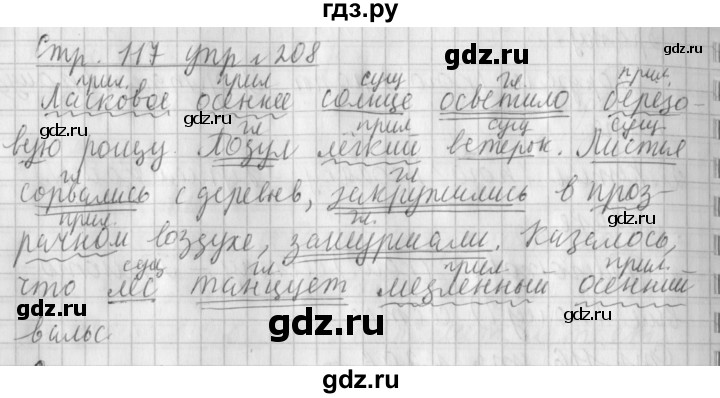 гдз.ру
Стр. 117 упр № 208
прил. прил сущ гл прил.
Ласковое осеннее солнце осветило берёзо-
гл прил сущ сущ.
вую рощу. Подул лёгкий ветерок. Листья
гл. гл.
сорвались с деревьев, закружились в проз-
прил. гл.
рачном воздухе, зашуршали. Казалось,
сущ гл. прил. прил.
что лес танцует медленный осенний
вальс
gdz.ru
gdz.ru
gdz.ru
gdz.ru
gdz.ru
gdz.ru
gdz.ru
gdz.ru